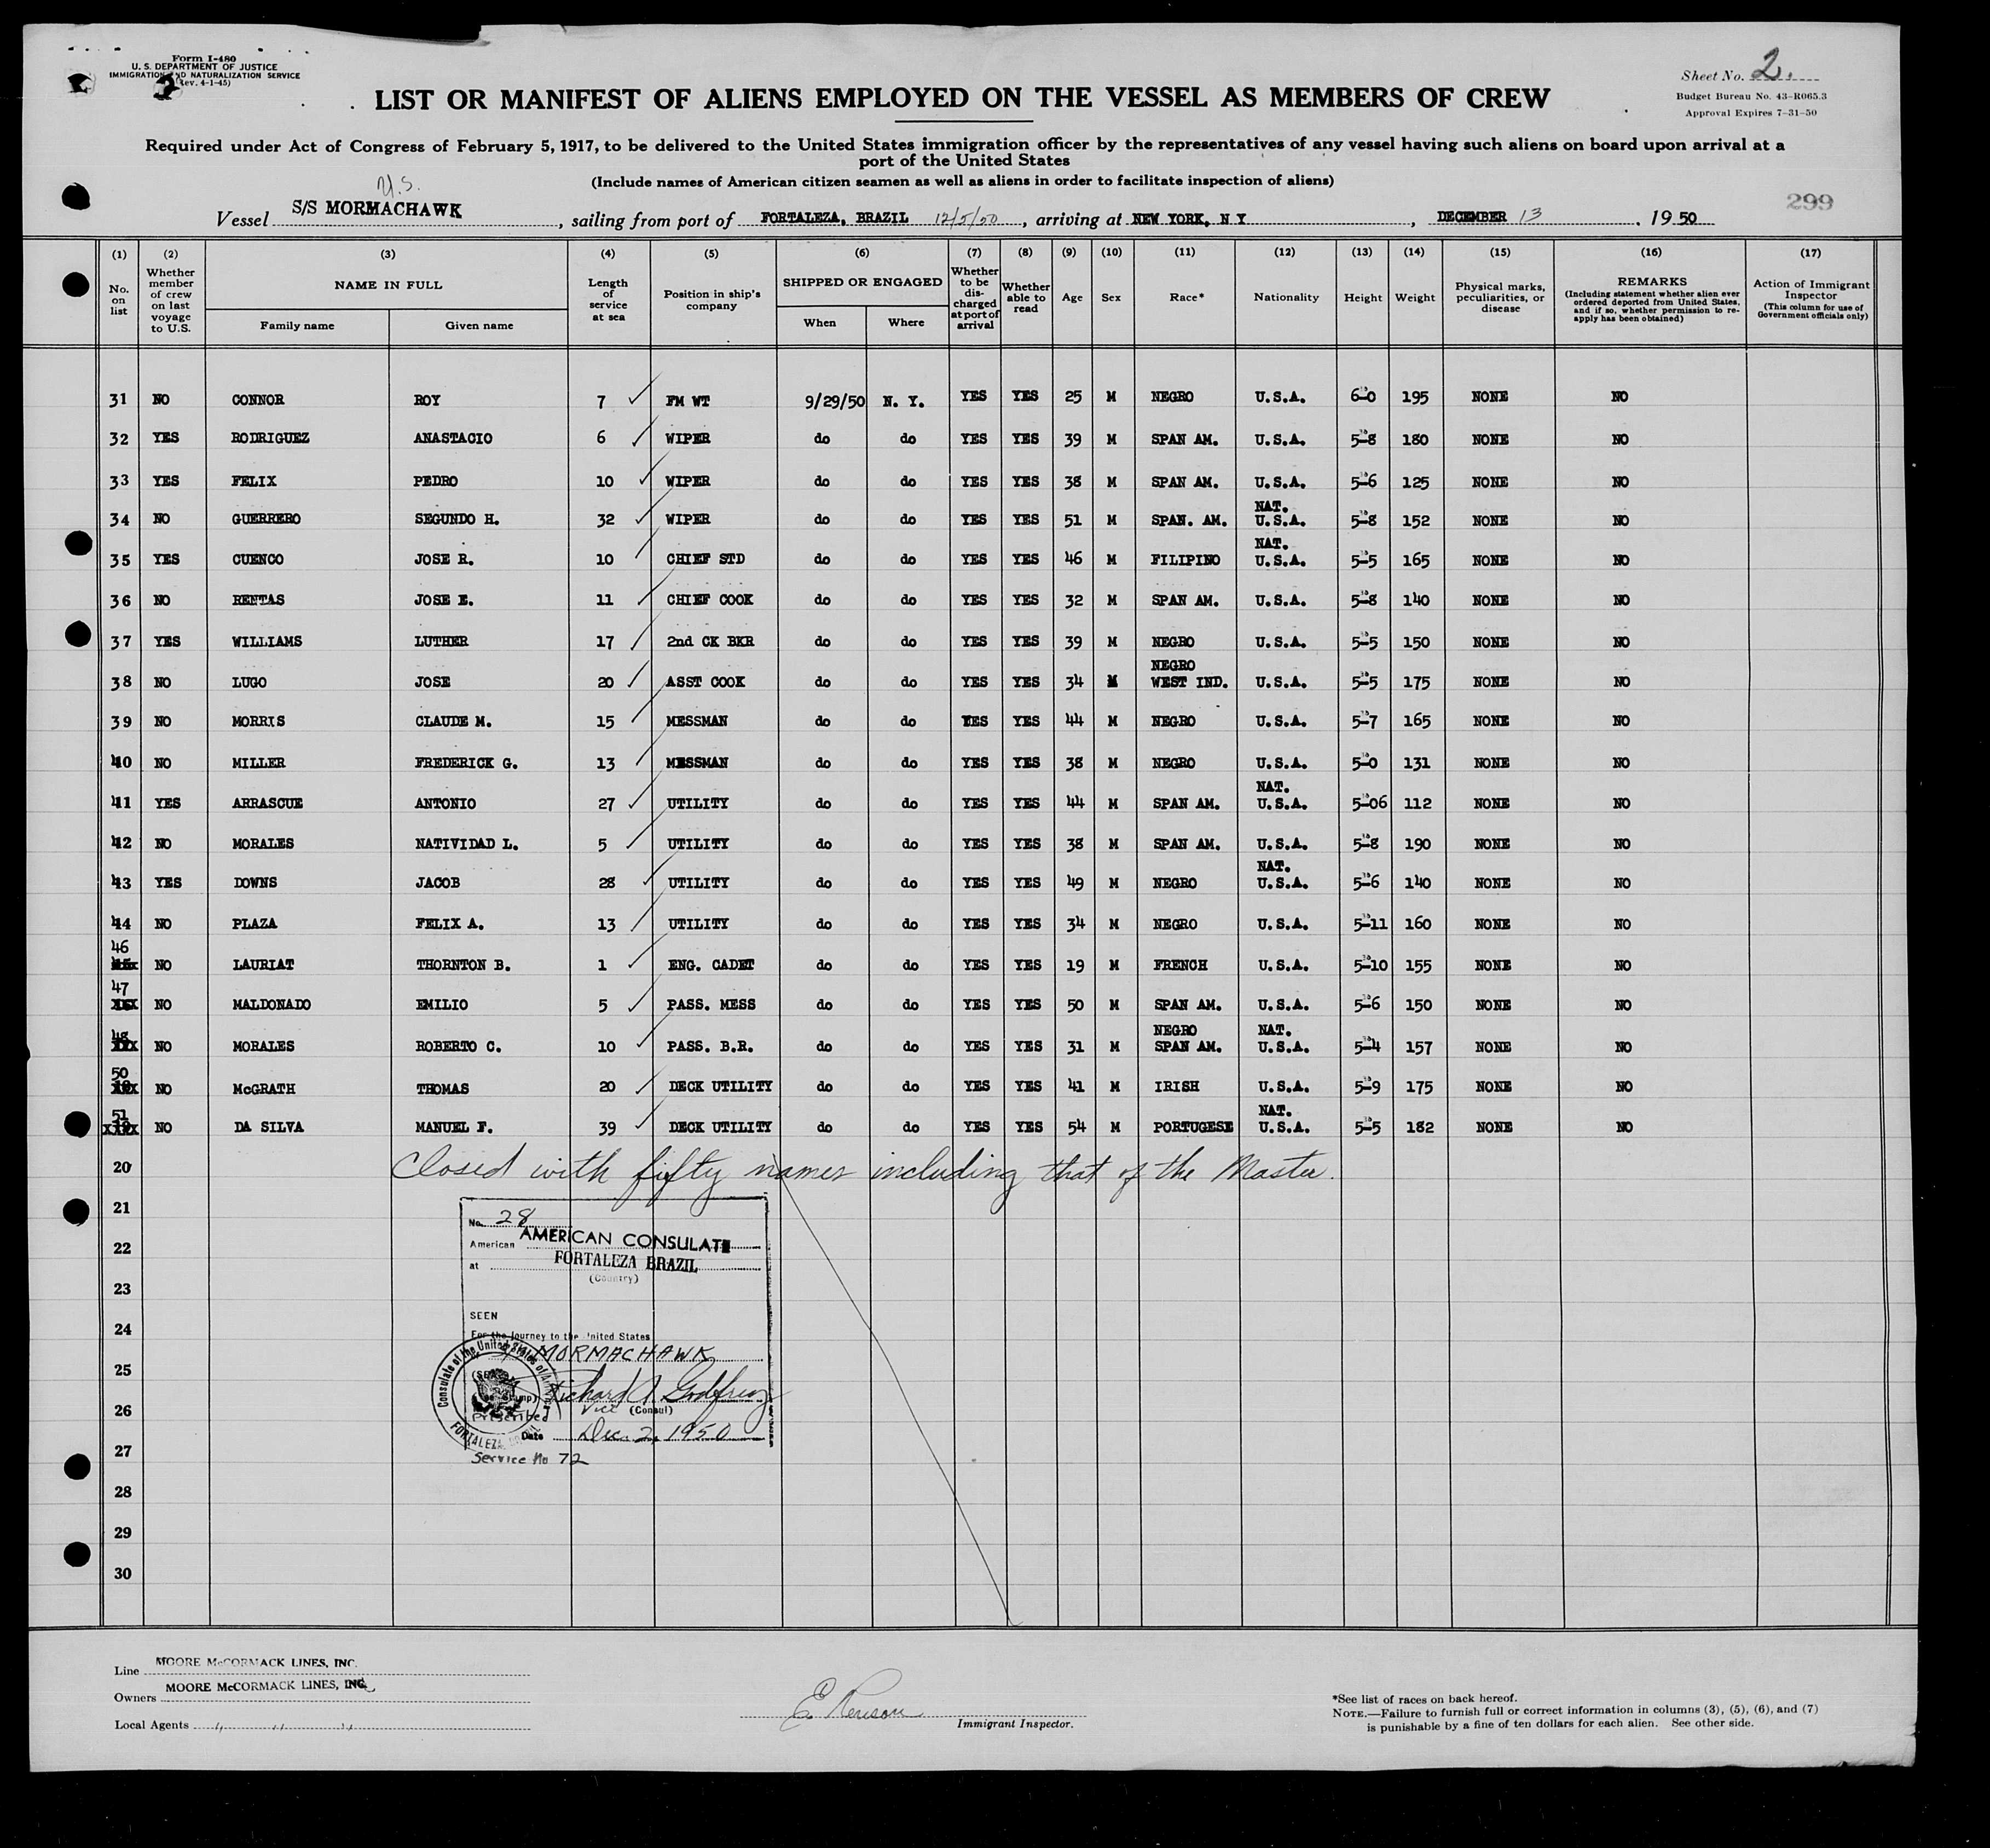 Form I-480
U. S. DEPARTMENT OF JUSTICE
IMMIGRATION AND NATURALIZATION SERVICE
(Rev. 4-1-45)
2
Sheet No. 2.
Budget Bureau No. 43-R065.3
Approval Expires 7-31-50
LIST OR MANIFEST OF ALIENS EMPLOYED ON THE VESSEL AS MEMBERS OF CREW
Required under Act of Congress of February 5, 1917, to be delivered to the United States immigration officer by the representatives of any vessel having such aliens on board upon arrival at a
port of the United States
(Include names of American citizen seamen as well as aliens in order to facilitate inspection of aliens)
U.S.
299
Vessel S/S MORMACHAWK, sailing from port of FORTALEZA, BRAZIL 12/5/50, arriving at NEW YORK, N Y, DECEMBER 13, 19 50
(1) No. on list (2) Whether member of crew on last voyage to U.S. (3) NAME IN FULL Family name Given name (4) Length of service at sea (5) Position in ship's company (6) SHIPPED OR ENGAGED When Where (7) Whether to be discharged at port of arrival (8) Whether able to read (9) Age (10) Sex (11) Race* (12) Nationality (13) Height (14) Weight (15) Physical marks, peculiarities, or disease (16) REMARKS (Including statement whether alien ever ordered deported from United States, and if so, whether permission to reapply has been obtained) (17) Action of Immigrant Inspector (This column for use of Government officials only)
31 NO CONNOR ROY 7 FM WT 9/29/50 N. Y. YES YES 25 M NEGRO U.S.A. 6-0 195 NONE NO
32 YES RODRIGUEZ ANASTACIO 6 WIPER do do YES YES 39 M SPAN AM. U.S.A. 5-8 180 NONE NO
33 YES FELIX PEDRO 10 WIPER do do YES YES 38 M SPAN AM. U.S.A. 5-6 125 NONE NO
34 NO GUERRERO SEGUNDO H. 32 WIPER do do YES YES 51 M SPAN. AM. NAT. U.S.A. 5-8 152 NONE NO
35 YES CUENCO JOSE R. 10 CHIEF STD do do YES YES 46 M FILIPINO NAT. U.S.A. 5-5 165 NONE NO
36 NO RENTAS JOSE E. 11 CHIEF COOK do do YES YES 32 M SPAN AM. U.S.A. 5-8 140 NONE NO
37 YES WILLIAMS LUTHER 17 2nd CK BKR do do YES YES 39 M NEGRO U.S.A. 5-5 150 NONE NO
38 NO LUGO JOSE 20 ASST COOK do do YES YES 34 M NEGRO WEST IND. U.S.A. 5-5 175 NONE NO
39 NO MORRIS CLAUDE M. 15 MESSMAN do do YES YES 44 M NEGRO U.S.A. 5-7 165 NONE NO
40 NO MILLER FREDERICK G. 13 MESSMAN do do YES YES 38 M NEGRO U.S.A. 5-0 131 NONE NO
41 YES ARRASCUE ANTONIO 27 UTILITY do do YES YES 44 M SPAN AM. NAT. U.S.A. 5-06 112 NONE NO
42 NO MORALES NATIVIDAD L. 5 UTILITY do do YES YES 38 M SPAN AM. U.S.A. 5-8 190 NONE NO
43 YES DOWNS JACOB 28 UTILITY do do YES YES 49 M NEGRO NAT. U.S.A. 5-6 140 NONE NO
44 NO PLAZA FELIX A. 13 UTILITY do do YES YES 34 M NEGRO U.S.A. 5-11 160 NONE NO
46 NO LAURIAT THORNTON B. 1 ENG. CADET do do YES YES 19 M FRENCH U.S.A. 5-10 155 NONE NO
47 NO MALDONADO EMILIO 5 PASS. MESS do do YES YES 50 M SPAN AM. U.S.A. 5-6 150 NONE NO
48 NO MORALES ROBERTO C. 10 PASS. B.R. do do YES YES 31 M NEGRO SPAN AM. NAT. U.S.A. 5-4 157 NONE NO
50 NO McGRATH THOMAS 20 DECK UTILITY do do YES YES 41 M IRISH U.S.A. 5-9 175 NONE NO
51 NO DA SILVA MANUEL F. 39 DECK UTILITY do do YES YES 54 M PORTUGESE NAT. U.S.A. 5-5 182 NONE NO
20 Closed with fifty names including that of the Master.
21
22
23
24
25
26
27
28
29
30
No. 28
American AMERICAN CONSULATE
at FORTALEZA BRAZIL
(Country)
SEEN
For the journey to the United States
MORMACHAWK
Richard A. Godfrey
Vice (Consul)
Prescribed
Date Dec. 2, 1950
Service No 72
Consulate of the United States of America
FORTALEZA, BRAZIL
Line MOORE McCORMACK LINES, INC.
Owners MOORE McCORMACK LINES, INC.
Local Agents " " "
E Renison
Immigrant Inspector.
*See list of races on back hereof.
NOTE.—Failure to furnish full or correct information in columns (3), (5), (6), and (7)
is punishable by a fine of ten dollars for each alien. See other side.